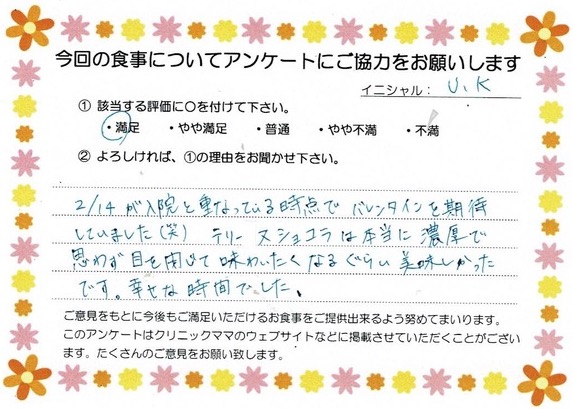 今回の食事についてアンケートにご協力をお願いします
イニシャル： U、K
① 該当する評価に○を付けて下さい。
・満足 ・やや満足 ・普通 ・やや不満 ・不満
② よろしければ、①の理由をお聞かせ下さい。
2/14が入院と重なっている時点でバレンタインを期待
していました(笑) テリーヌショコラは本当に濃厚で
思わず目を閉じて味わいたくなるぐらい美味しかった
です。幸せな時間でした。
ご意見をもとに今後もご満足いただけるお食事をご提供出来るよう努めてまいります。
このアンケートはクリニックママのウェブサイトなどに掲載させていただくことがござい
ます。たくさんのご意見をお願い致します。